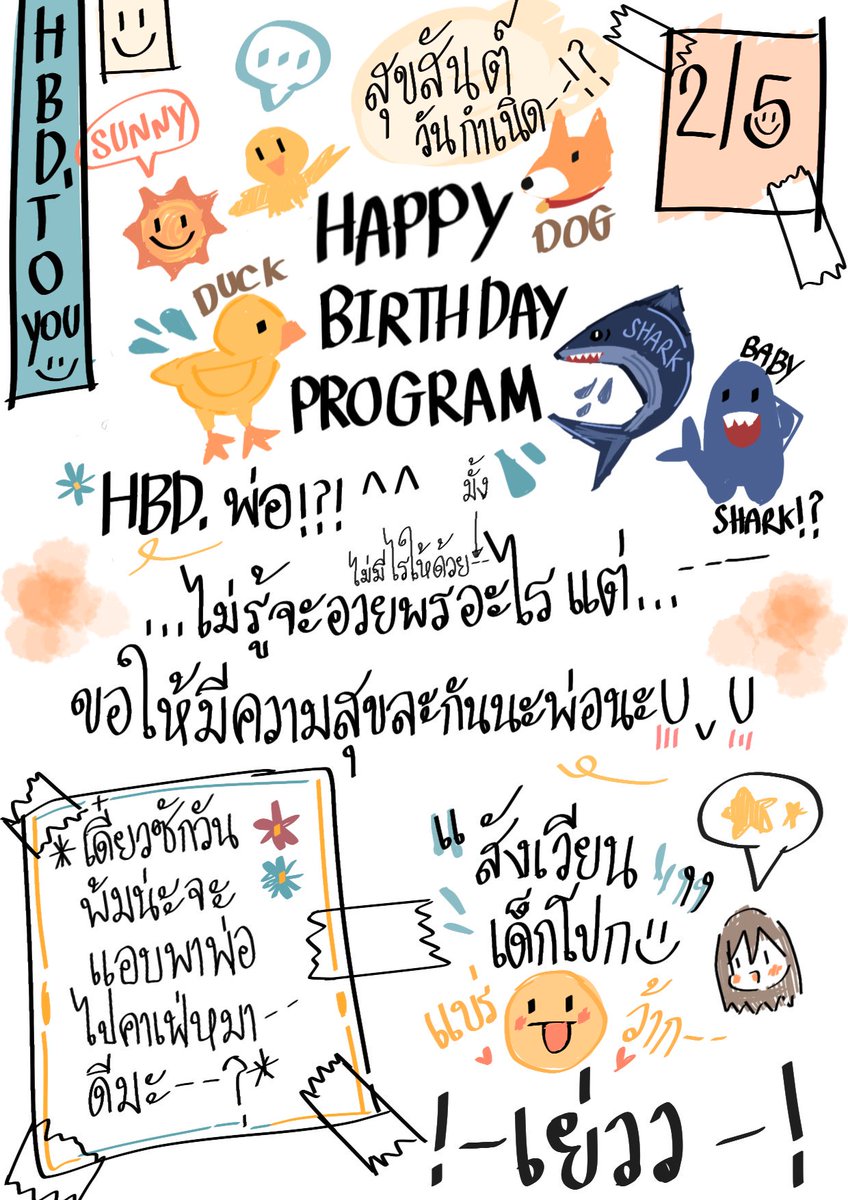 HBD. TO YOU
SUNNY
สุขสันต์
วันกำเนิด--!?
2/5
DOG
HAPPY
DUCK
BIRTHDAY
SHARK
PROGRAM
BABY
SHARK!?
HBD. พ่อ!?! ^^
มั้ง
ไม่มีไรให้ด้วย--
...ไม่รู้จะอวยพรอะไร แต่...---
ขอให้มีความสุขละกันนะพ่อนะ
*เดี๋ยวซักวัน
พ้มน่ะจะ
แอบพาพ่อ
ไปคาเฟ่หมา--
ดีมะ---?*
"สังเวียน
เด็กโปก"
แบร่
ว้าก--
!--เย่วว-!